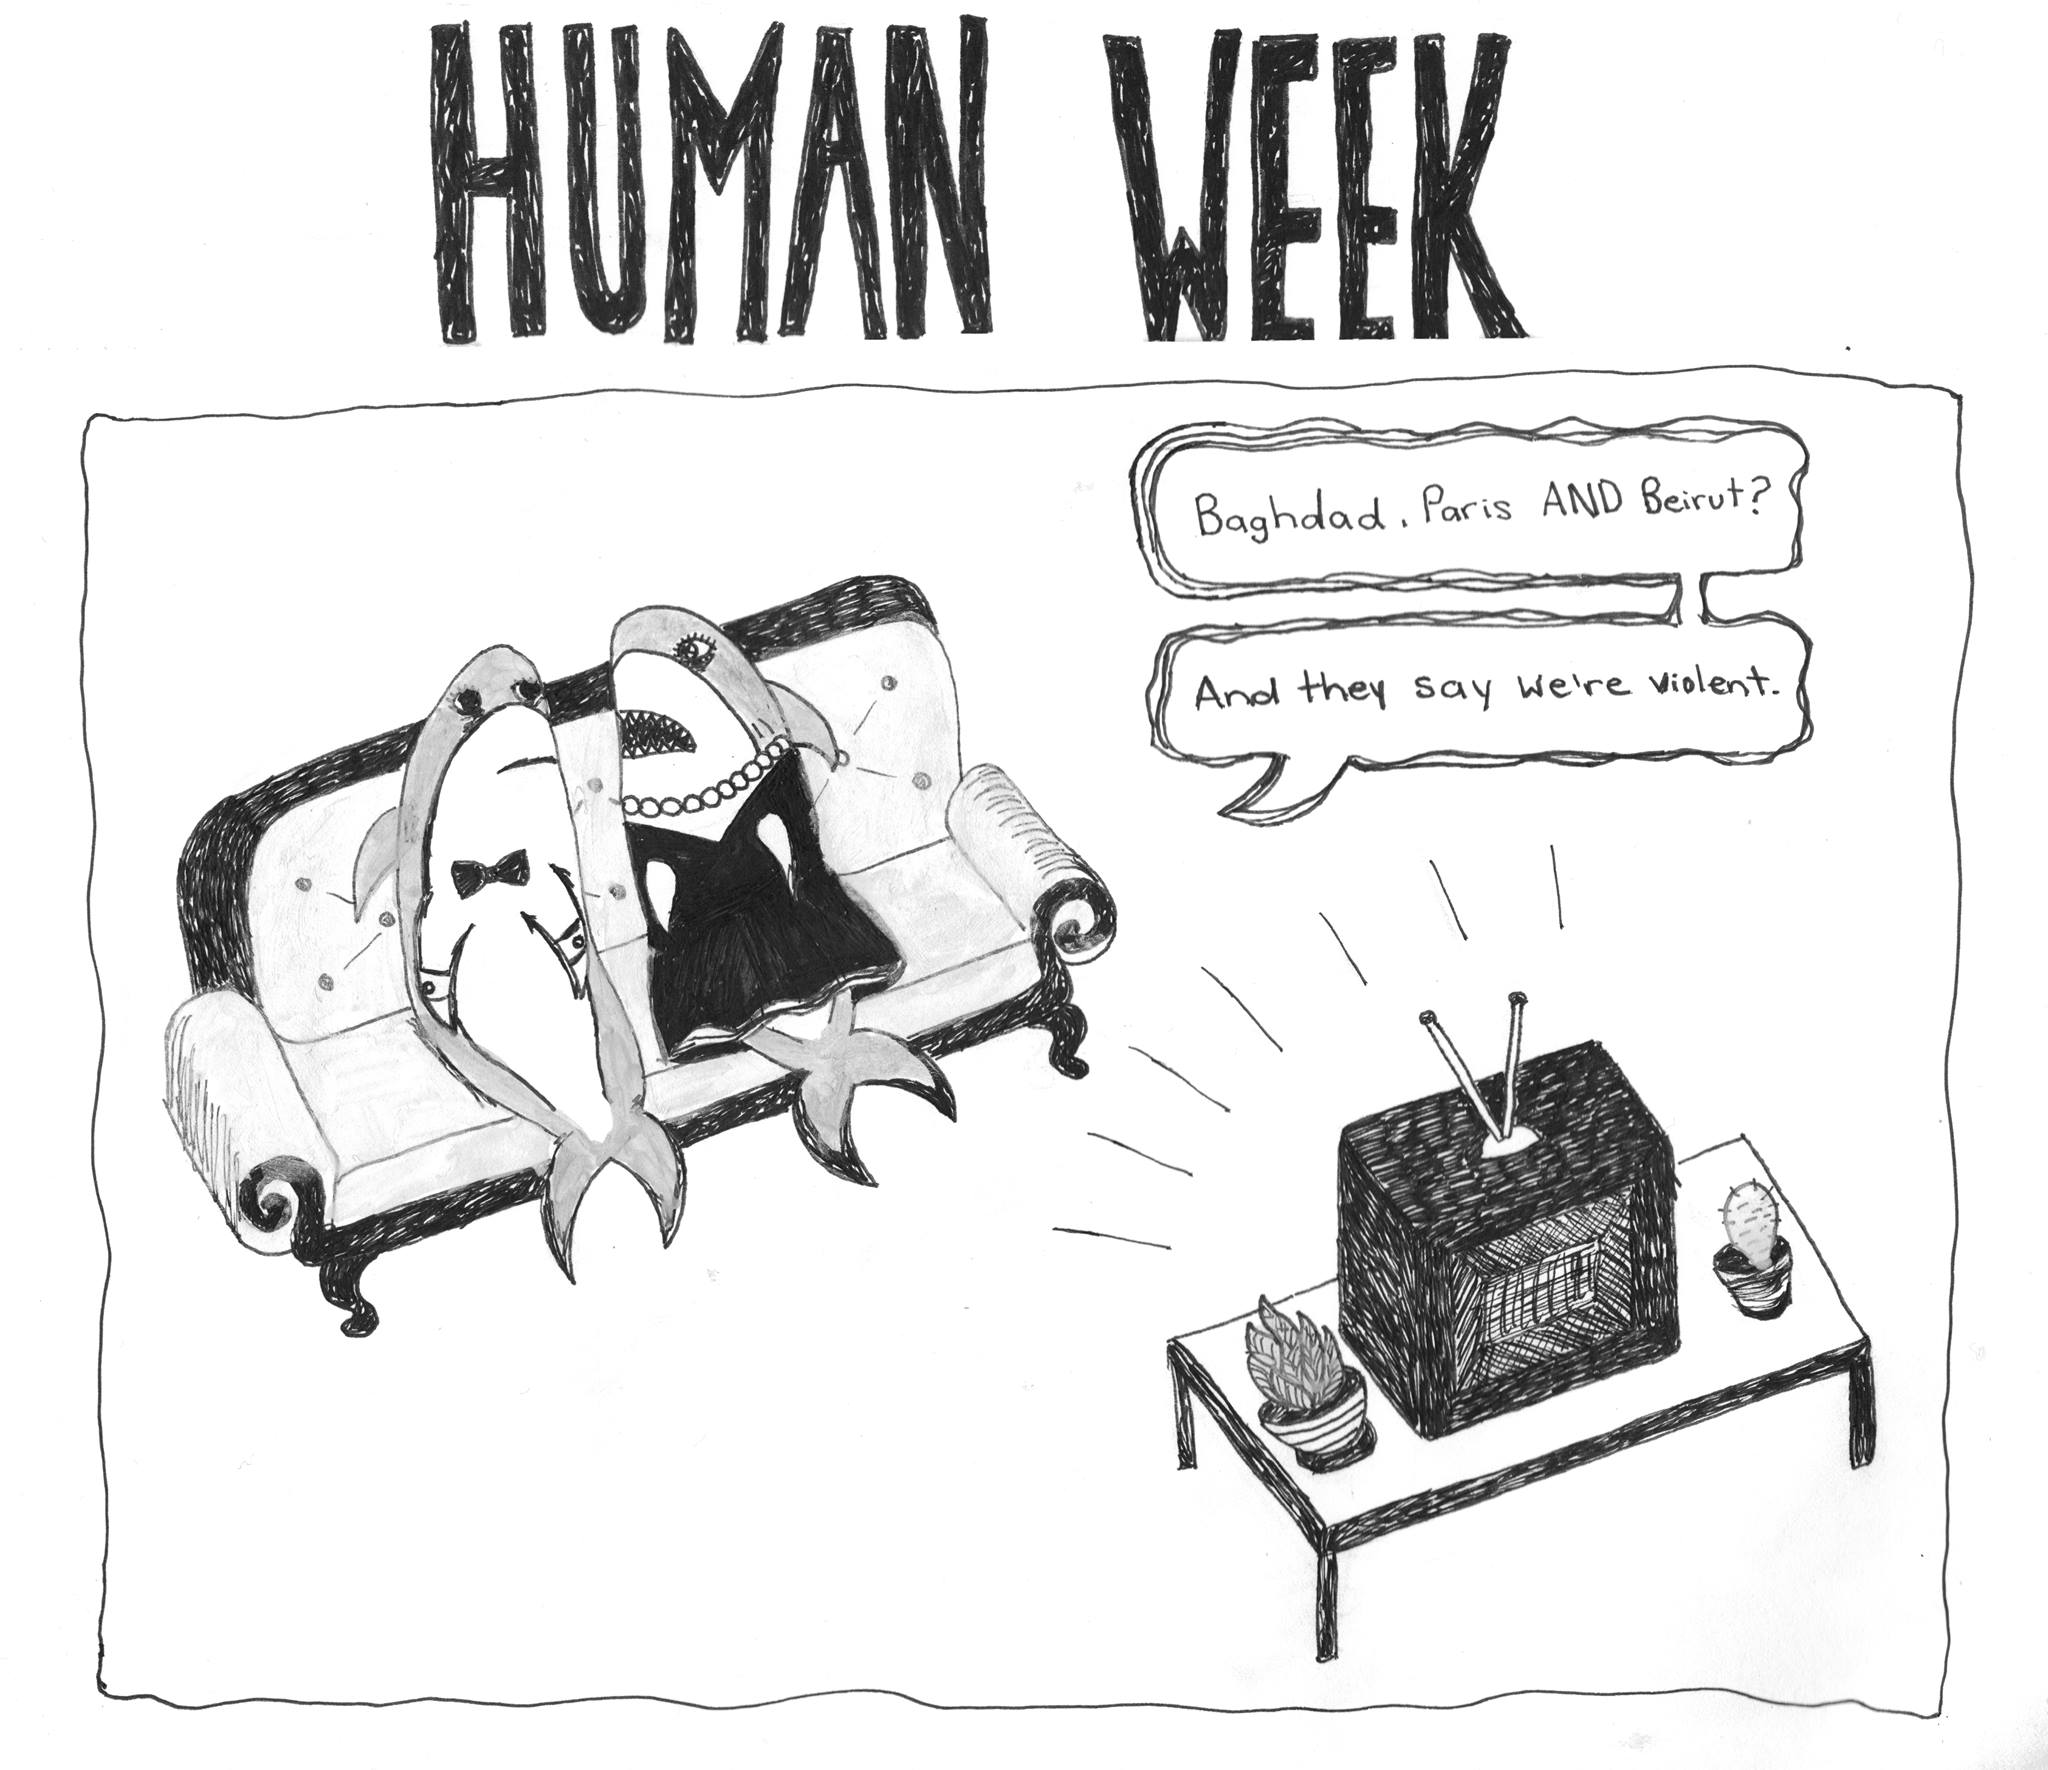 HUMAN WEEK
Baghdad, Paris AND Beirut?
And they say we're violent.